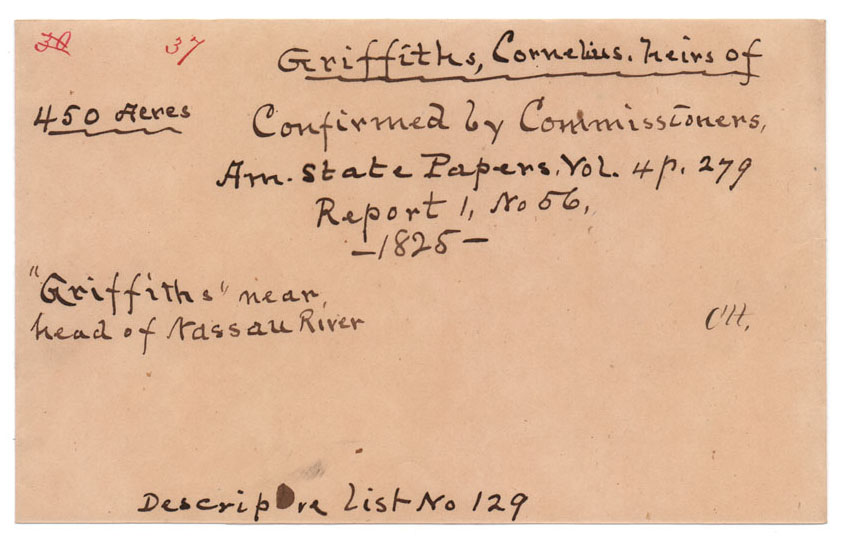 37
Griffiths, Cornelius. heirs of
450 Acres
Confirmed by Commissioners,
Am. State Papers, Vol. 4 p. 279
Report 1, No 56,
—1825—
"Griffiths" near
head of Nassau River
CH.
List No 129